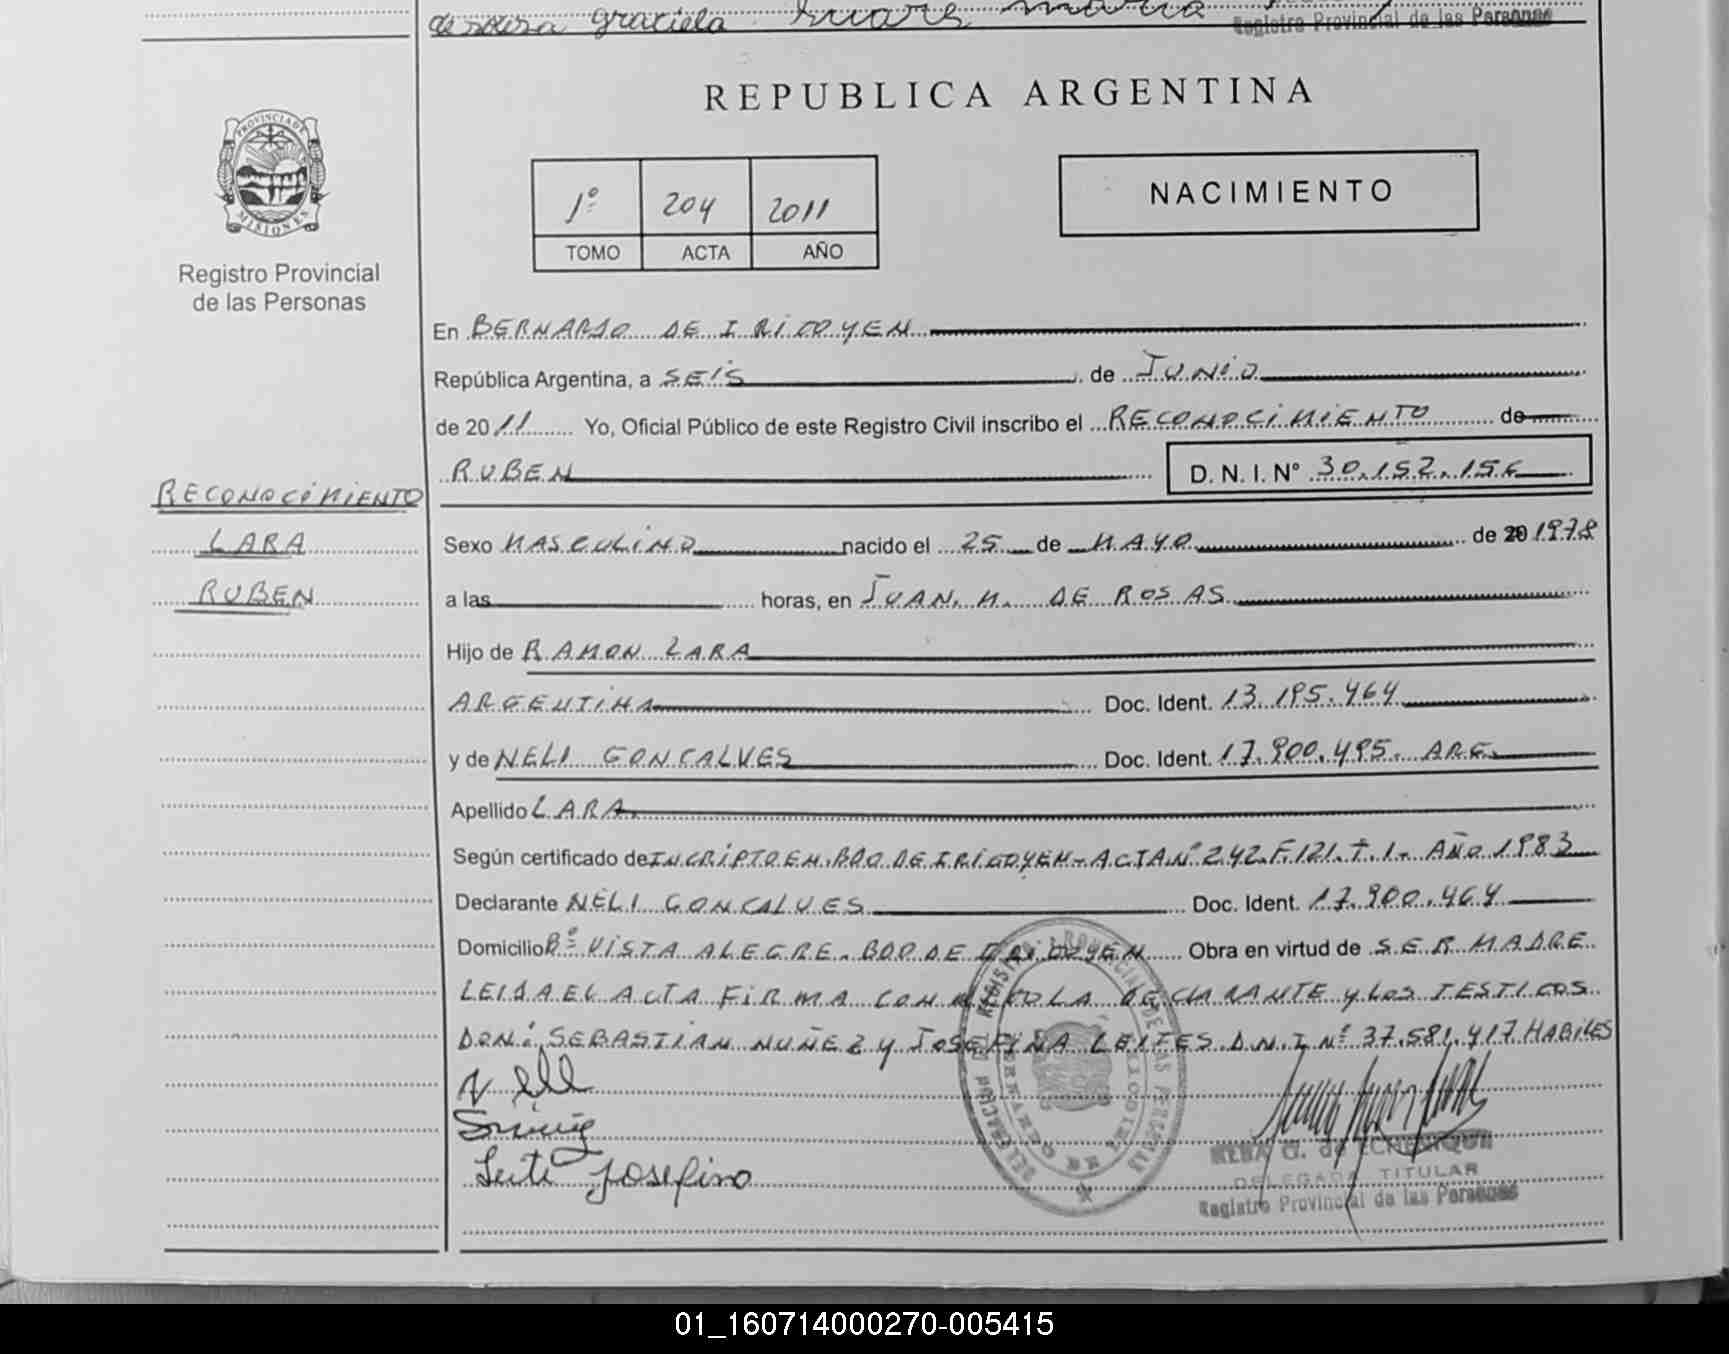 graciela
Registro Provincial de las Personas
REPUBLICA ARGENTINA
PROVINCIA DE
MISIONES
Registro Provincial
de las Personas
1º 204 2011
TOMO ACTA AÑO
NACIMIENTO
En BERNARDO DE IRIGOYEN
República Argentina, a SEIS de JUNIO
de 2011 Yo, Oficial Público de este Registro Civil inscribo el RECONOCIMIENTO de
RUBEN D. N. I. Nº 30.152.156
RECONOCIMIENTO
LARA
RUBEN
Sexo MASCULINO nacido el 25 de MAYO de 20 1978
a las horas, en JUAN. M. DE ROSAS
Hijo de RAMON LARA
ARGENTINA Doc. Ident. 13.195.464
y de NELI GONCALVES Doc. Ident. 17.900.495. ARG.
Apellido LARA
Según certificado de INCRIPTO EN. BDO DE IRIGOYEN - ACTA Nº 242. F. 121. T. 1. AÑO 1983
Declarante NELI GONCALVES Doc. Ident. 17.900.464
Domicilio Bº VISTA ALEGRE. BDO DE IRIGOYEN Obra en virtud de SER MADRE
LEIDA EL ACTA FIRMA CONMIGO LA DECLARANTE y LOS TESTIGOS
DON: SEBASTIAN NUÑEZ y JOSEFINA LEITES D.N.I Nº 37.581.417 HABILES
Josefina
DELEGADA TITULAR
Registro Provincial de las Personas
01_160714000270-005415